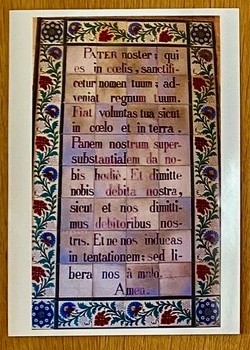 PATER noster; qui
es in cœlis, sanctifi-
cetur nomen tuum; ad-
veniat regnum tuum.
Fiat voluntas tua sicut
in cœlo et in terra.
Panem nostrum super-
substantialem da no-
bis hodie. Et dimitte
nobis debita nostra,
sicut et nos dimitti-
mus debitoribus nos-
tris. Et ne nos inducas
in tentationem; sed li-
bera nos à malo.
Amen.